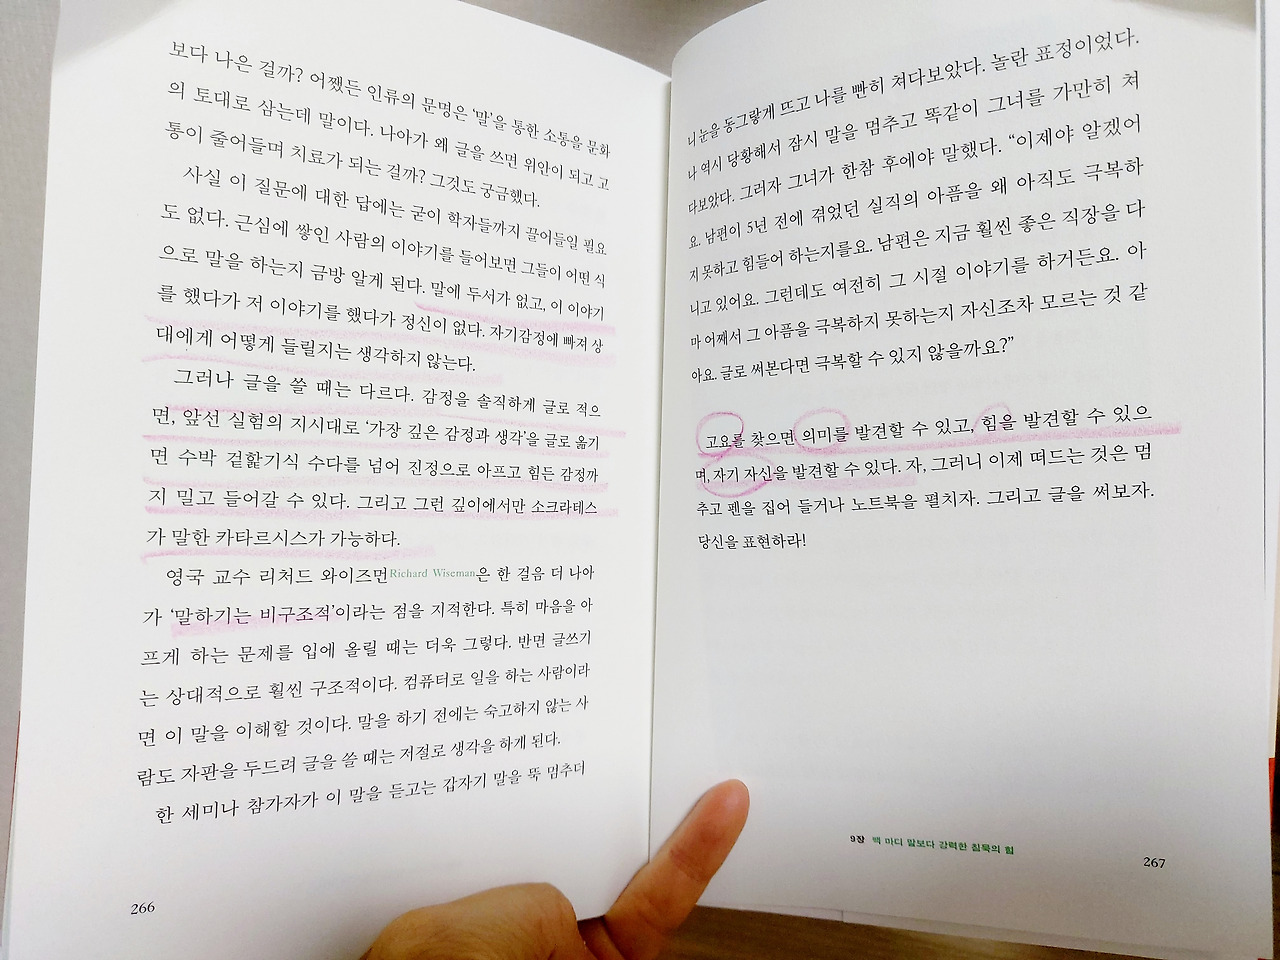 보다 나은 걸까? 어쨌든 인류의 문명은 ‘말’을 통한 소통을 문화
의 토대로 삼는데 말이다. 나아가 왜 글을 쓰면 위안이 되고 고
통이 줄어들며 치료가 되는 걸까? 그것도 궁금했다.
사실 이 질문에 대한 답에는 굳이 학자들까지 끌어들일 필요
도 없다. 근심에 쌓인 사람의 이야기를 들어보면 그들이 어떤 식
으로 말을 하는지 금방 알게 된다. 말에 두서가 없고, 이 이야기
를 했다가 저 이야기를 했다가 정신이 없다. 자기감정에 빠져 상
대에게 어떻게 들릴지는 생각하지 않는다.
그러나 글을 쓸 때는 다르다. 감정을 솔직하게 글로 적으
면, 앞선 실험의 지시대로 ‘가장 깊은 감정과 생각’을 글로 옮기
면 수박 겉핥기식 수다를 넘어 진정으로 아프고 힘든 감정까
지 밀고 들어갈 수 있다. 그리고 그런 깊이에서만 소크라테스
가 말한 카타르시스가 가능하다.
영국 교수 리처드 와이즈먼Richard Wiseman은 한 걸음 더 나아
가 ‘말하기는 비구조적’이라는 점을 지적한다. 특히 마음을 아
프게 하는 문제를 입에 올릴 때는 더욱 그렇다. 반면 글쓰기
는 상대적으로 훨씬 구조적이다. 컴퓨터로 일을 하는 사람이라
면 이 말을 이해할 것이다. 말을 하기 전에는 숙고하지 않는 사
람도 자판을 두드려 글을 쓸 때는 저절로 생각을 하게 된다.
한 세미나 참가자가 이 말을 듣고는 갑자기 말을 뚝 멈추더
266
니 눈을 동그랗게 뜨고 나를 빤히 쳐다보았다. 놀란 표정이었다.
나 역시 당황해서 잠시 말을 멈추고 똑같이 그녀를 가만히 쳐
다보았다. 그러자 그녀가 한참 후에야 말했다. “이제야 알겠어
요. 남편이 5년 전에 겪었던 실직의 아픔을 왜 아직도 극복하
지 못하고 힘들어 하는지를요. 남편은 지금 훨씬 좋은 직장을 다
니고 있어요. 그런데도 여전히 그 시절 이야기를 하거든요. 아
마 어째서 그 아픔을 극복하지 못하는지 자신조차 모르는 것 같
아요. 글로 써본다면 극복할 수 있지 않을까요?”
고요를 찾으면 의미를 발견할 수 있고, 힘을 발견할 수 있으
며, 자기 자신을 발견할 수 있다. 자, 그러니 이제 떠드는 것은 멈
추고 펜을 집어 들거나 노트북을 펼치자. 그리고 글을 써보자.
당신을 표현하라!
9장 백 마디 말보다 강력한 침묵의 힘
267